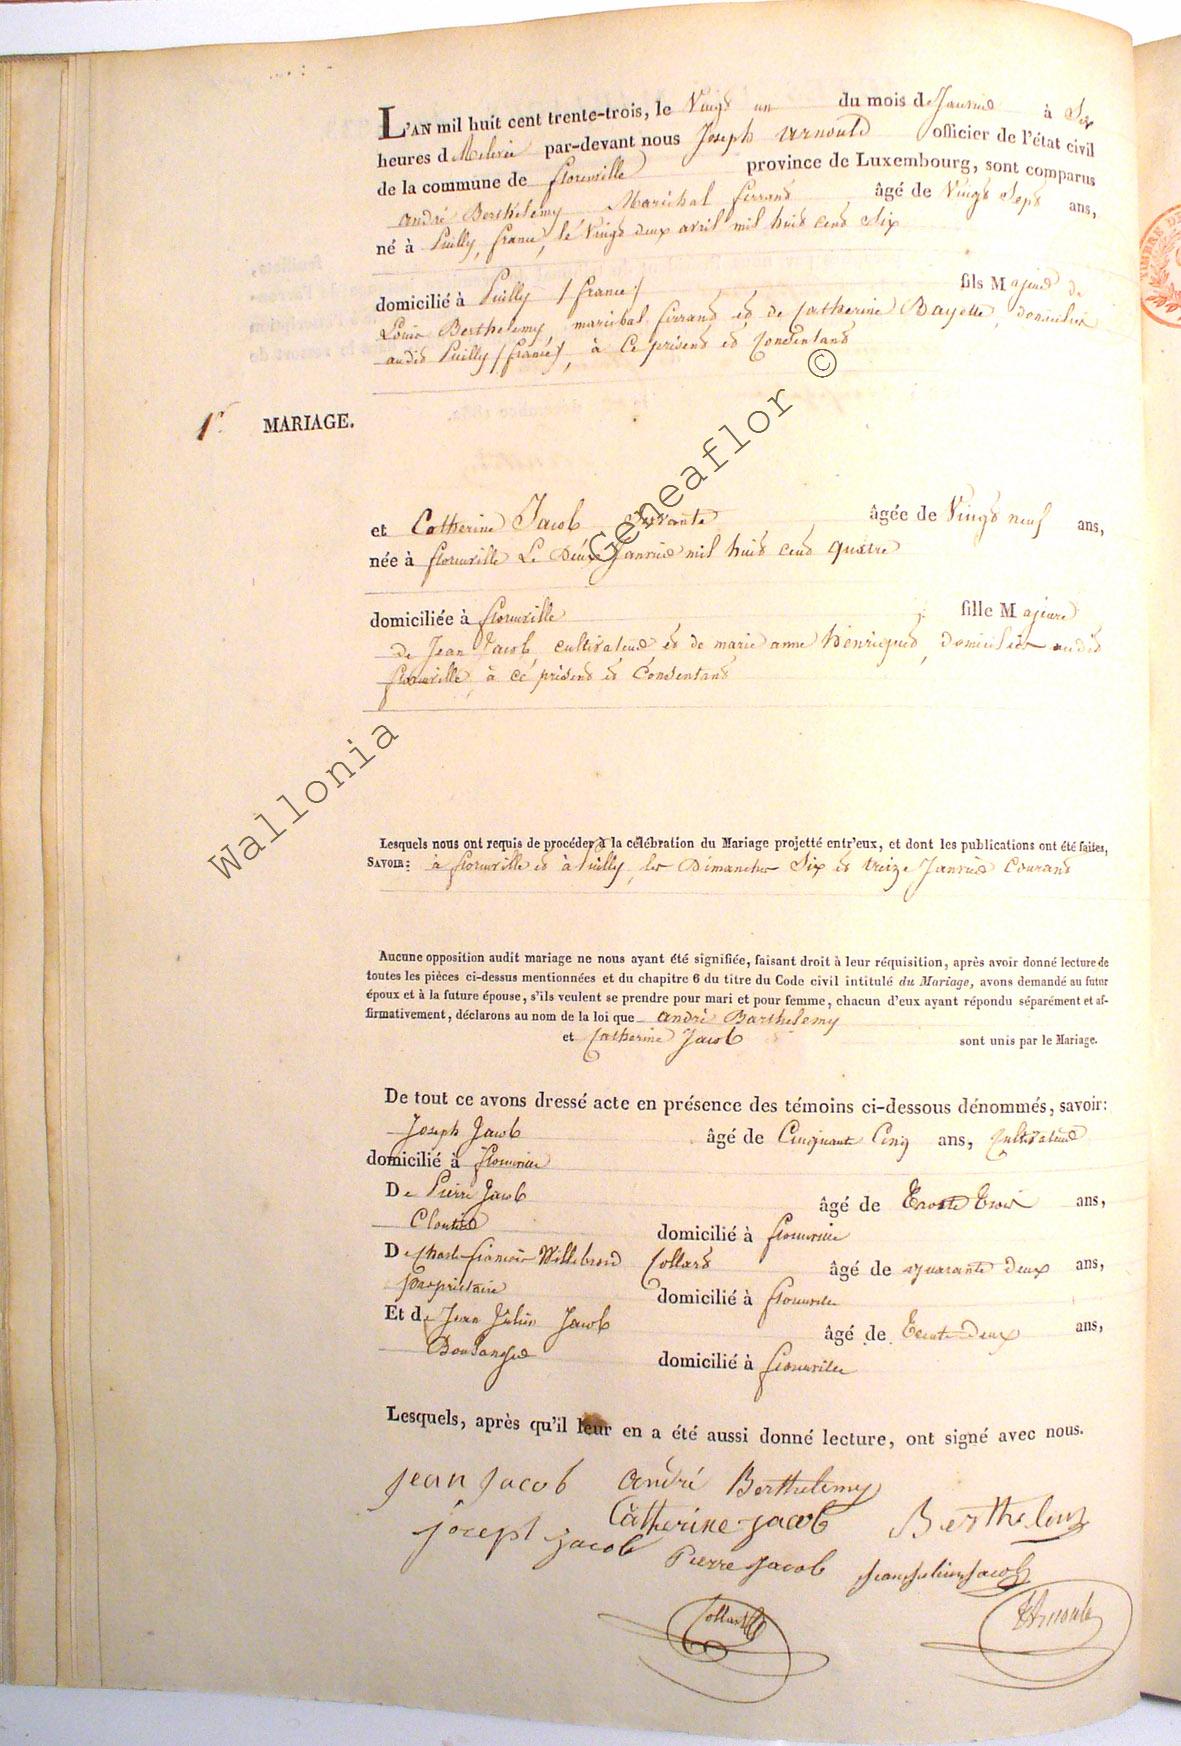 L'AN mil huit cent trente-trois, le Vingt un du mois de Janvier à Six
heures d par-devant nous Joseph Arnould officier de l'état civil
de la commune de florenville province de Luxembourg, sont comparus
andré Berthelemy Maréchal ferrant âgé de Vingt Sept ans,
né à Puilly, france, le Vingt deux avril mil huit cent Six
domicilié à Puilly (france) fils Majeur de
Louis Berthelemy, maréchal ferrant et de Catherine Bayette, domiciliés
audit Puilly (france), à ce présent et Consentant
1r. MARIAGE.
et Catherine Jacob Servante âgée de Vingt neuf ans,
née à florenville Le Deux Janvier mil huit cent quatre
domiciliée à florenville fille Majeure
de Jean Jacob, cultivateur et de marie anne henriquet, domiciliés audit
florenville, à ce présent et Consentant
Lesquels nous ont requis de procéder à la célébration du Mariage projetté entr'eux, et dont les publications ont été faites,
SAVOIR: à florenville et à Puilly, les Dimanches Six et treize Janvier Courant
Aucune opposition audit mariage ne nous ayant été signifiée, faisant droit à leur réquisition, après avoir donné lecture de
toutes les pièces ci-dessus mentionnées et du chapitre 6 du titre du Code civil intitulé du Mariage, avons demandé au futur
époux et à la future épouse, s'ils veulent se prendre pour mari et pour femme, chacun d'eux ayant répondu séparément et af-
firmativement, déclarons au nom de la loi que andré Barthelemy
et Catherine Jacob sont unis par le Mariage.
De tout ce avons dressé acte en présence des témoins ci-dessous dénommés, savoir:
Joseph Jacob âgé de Cinquante Cinq ans, Cultivateur
domicilié à florenville
De Pierre Jacob âgé de Trente Trois ans,
Cloutier domicilié à florenville
De Charle françois Willebrord Collard âgé de quarante deux ans,
propriétaire domicilié à florenville
Et de Jean Julien Jacob âgé de Trente Deux ans,
Boulanger domicilié à florenville
Lesquels, après qu'il leur en a été aussi donné lecture, ont signé avec nous.
jean jacob andré Berthelemy
joseph jacob Catherine jacob Berthelemy
Pierre jacob jean julien jacob
Collard Arnould
Wallonia Geneaflor ©
TIMBRE DE